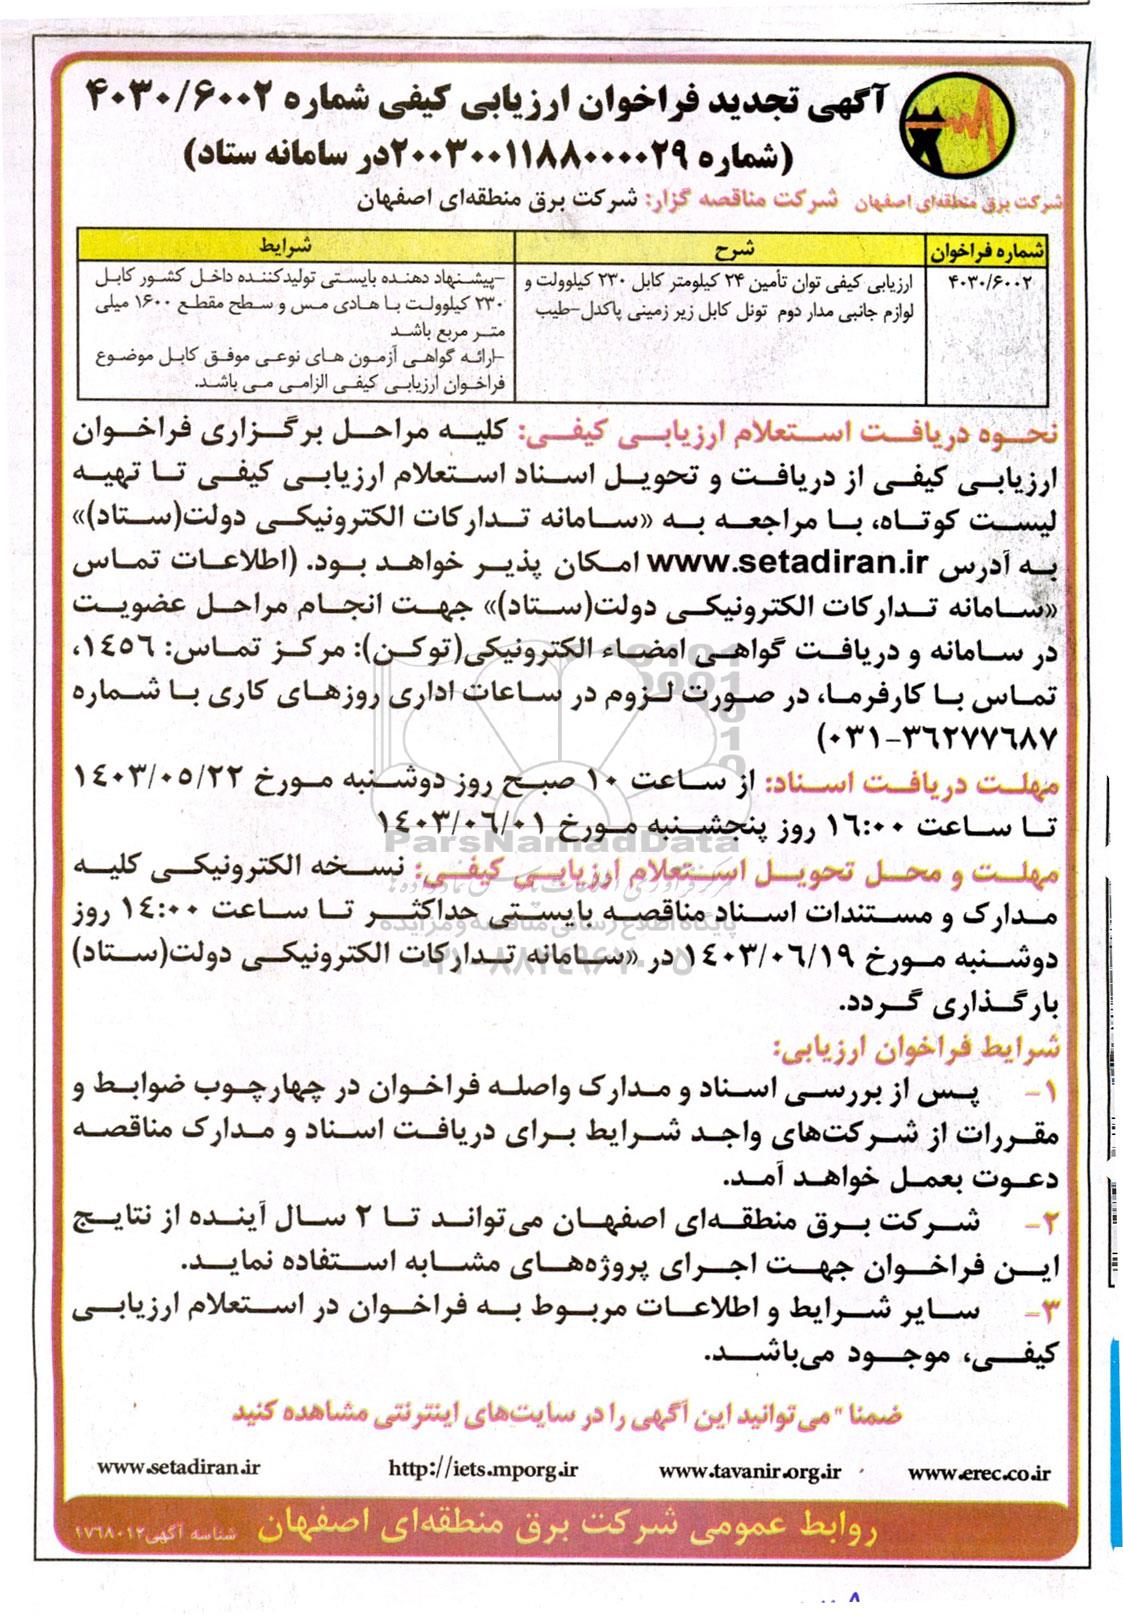 آگهی تجدید فراخوان ارزیابی کیفی شماره ۴۰۳۰/۶۰۰۲
(شماره ۲۰۰۳۰۰۱۱۸۸۰۰۰۰۲۹در سامانه ستاد)
شرکت برق منطقه‌ای اصفهان
شرکت مناقصه گزار: شرکت برق منطقه‌ای اصفهان
شماره فراخوان
شرح
شرایط
۴۰۳۰/۶۰۰۲
ارزیابی کیفی توان تأمین ۲۴ کیلومتر کابل ۲۳۰ کیلوولت و
لوازم جانبی مدار دوم تونل کابل زیر زمینی پاکدل-طیب
-پیشنهاد دهنده بایستی تولیدکننده داخل کشور کابل
۲۳۰ کیلوولت با هادی مس و سطح مقطع ۱۶۰۰ میلی
متر مربع باشد
-ارائه گواهی آزمون های نوعی موفق کابل موضوع
فراخوان ارزیابی کیفی الزامی می باشد.
نحوه دریافت استعلام ارزیابی کیفی: کلیه مراحل برگزاری فراخوان
ارزیابی کیفی از دریافت و تحویل اسناد استعلام ارزیابی کیفی تا تهیه
لیست کوتاه، با مراجعه به «سامانه تدارکات الکترونیکی دولت(ستاد)»
به آدرس www.setadiran.ir امکان پذیر خواهد بود. (اطلاعات تماس
«سامانه تدارکات الکترونیکی دولت(ستاد)» جهت انجام مراحل عضویت
در سامانه و دریافت گواهی امضاء الکترونیکی(توکن): مرکز تماس: ۱۴۵۶،
تماس با کارفرما، در صورت لزوم در ساعات اداری روزهای کاری با شماره
۰۳۱-۳۶۲۷۷۶۸۷)
مهلت دریافت اسناد: از ساعت ۱۰ صبح روز دوشنبه مورخ ۱۴۰۳/۰۵/۲۲
تا ساعت ۱۶:۰۰ روز پنجشنبه مورخ ۱۴۰۳/۰۶/۰۱
ParsNamadData
مهلت و محل تحویل استعلام ارزیابی کیفی: نسخه الکترونیکی کلیه
مدارک و مستندات اسناد مناقصه بایستی حداکثر تا ساعت ۱۴:۰۰ روز
پایگاه اطلاع رسانی مناقصه و مزایده
دوشنبه مورخ ۱۴۰۳/۰۶/۱۹ در «سامانه تدارکات الکترونیکی دولت(ستاد)
بارگذاری گردد.
شرایط فراخوان ارزیابی:
۱- پس از بررسی اسناد و مدارک واصله فراخوان در چهارچوب ضوابط و
مقررات از شرکت‌های واجد شرایط برای دریافت اسناد و مدارک مناقصه
دعوت بعمل خواهد آمد.
۲- شرکت برق منطقه‌ای اصفهان می‌تواند تا ۲ سال آینده از نتایج
این فراخوان جهت اجرای پروژه‌های مشابه استفاده نماید.
۳- سایر شرایط و اطلاعات مربوط به فراخوان در استعلام ارزیابی
کیفی، موجود می‌باشد.
ضمنا " می‌توانید این آگهی را در سایت‌های اینترنتی مشاهده کنید
www.setadiran.ir http://iets.mporg.ir www.tavanir.org.ir www.erec.co.ir
روابط عمومی شرکت برق منطقه‌ای اصفهان شناسه آگهی۱۷۶۸۰۱۲